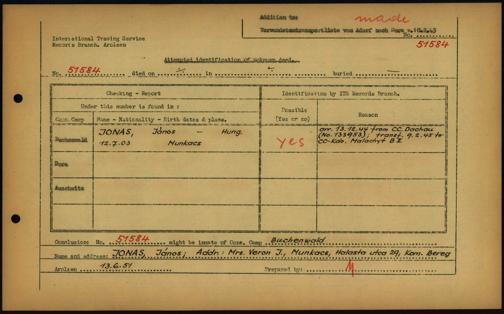 Addition to: made
International Tracing Service
Records Branch, Arolsen
Verwundetentransportliste von Adorf nach Gera v. 10.2.45
No. 51584
Attempted identification of unknown dead.
No. 51584 died on in buried
Checking - Report
Identification by ITS Records Branch.
Under this number is found in :
Possible (Yes or no)
Reason
Conc. Camp
Name - Nationality - Birth dates & place.
Buchenwald
JONAS, János - Hung.
12.7.03 Munkacs
yes
arr. 13.12.44 from CC. Dachau
(No. 133953); transf. 9.2.45 to
CC-Kdo. Malachyt B II
Dora
Auschwitz
Conclusion: No. 51584 might be inmate of Conc. Camp Buchenwald
Name and address: JONAS, János; Addr: Mrs. Veron J., Munkacs, Halasta utca 29, Kom. Bereg
Arolsen 13.6.51 Prepared by: